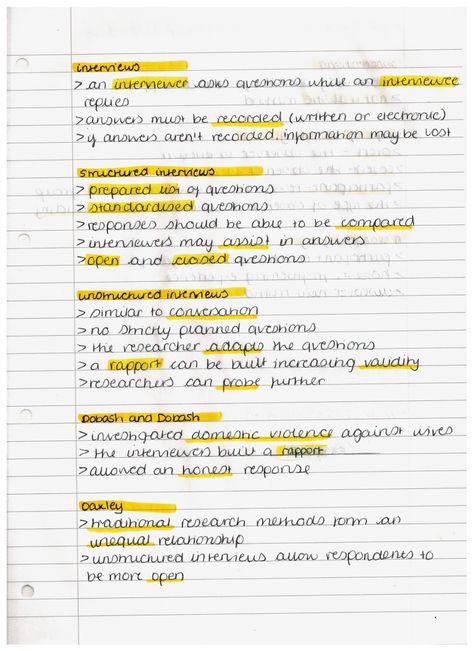 interviews
> an interviewer asks questions while an interviewee
replies
> answers must be recorded (written or electronic)
> if answers aren't recorded, information may be lost
structured interviews
> prepared list of questions
> standardised questions
> responses should be able to be compared
> interviewers may assist in answers
> open and closed questions
unstructured interviews
> similar to conversation
> no strictly planned questions
> the researcher adapts the questions
> a rapport can be built increasing validity
> researchers can probe further
Dobash and Dobash
> investigated domestic violence against wives
> the interviewers built a rapport
> allowed an honest response
Oakley
> traditional research methods form an
unequal relationship
> unstructured interviews allow respondents to
be more open